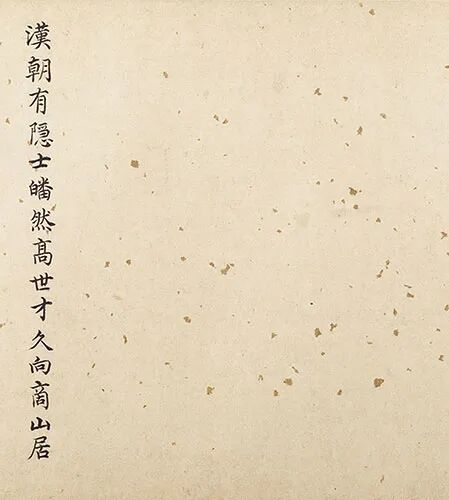 漢朝有隠士皤然髙世才久向商山居